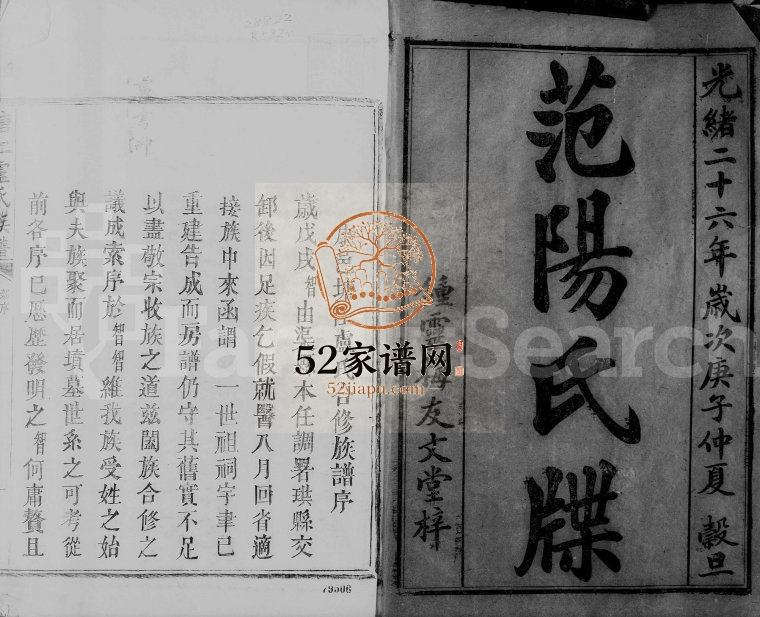 光緒二十六年歲次庚子仲夏 穀旦
范陽氏牒
友文堂梓
合修族譜序
歲戊戌智由
本任調署珙縣交
卸後因足疾乞假就醫八月回省適
接族中來函謂 一世祖祠宇聿已
重建告成而房譜仍守其舊實不足
以盡敬宗收族之道兹闔族合修之
議成索序於智智維我族受姓之始
與夫族聚而居墳墓世系之可考從
前各序已悉歷發明之智何庸贅且
52家谱网
52jiapu.com
Search
79506